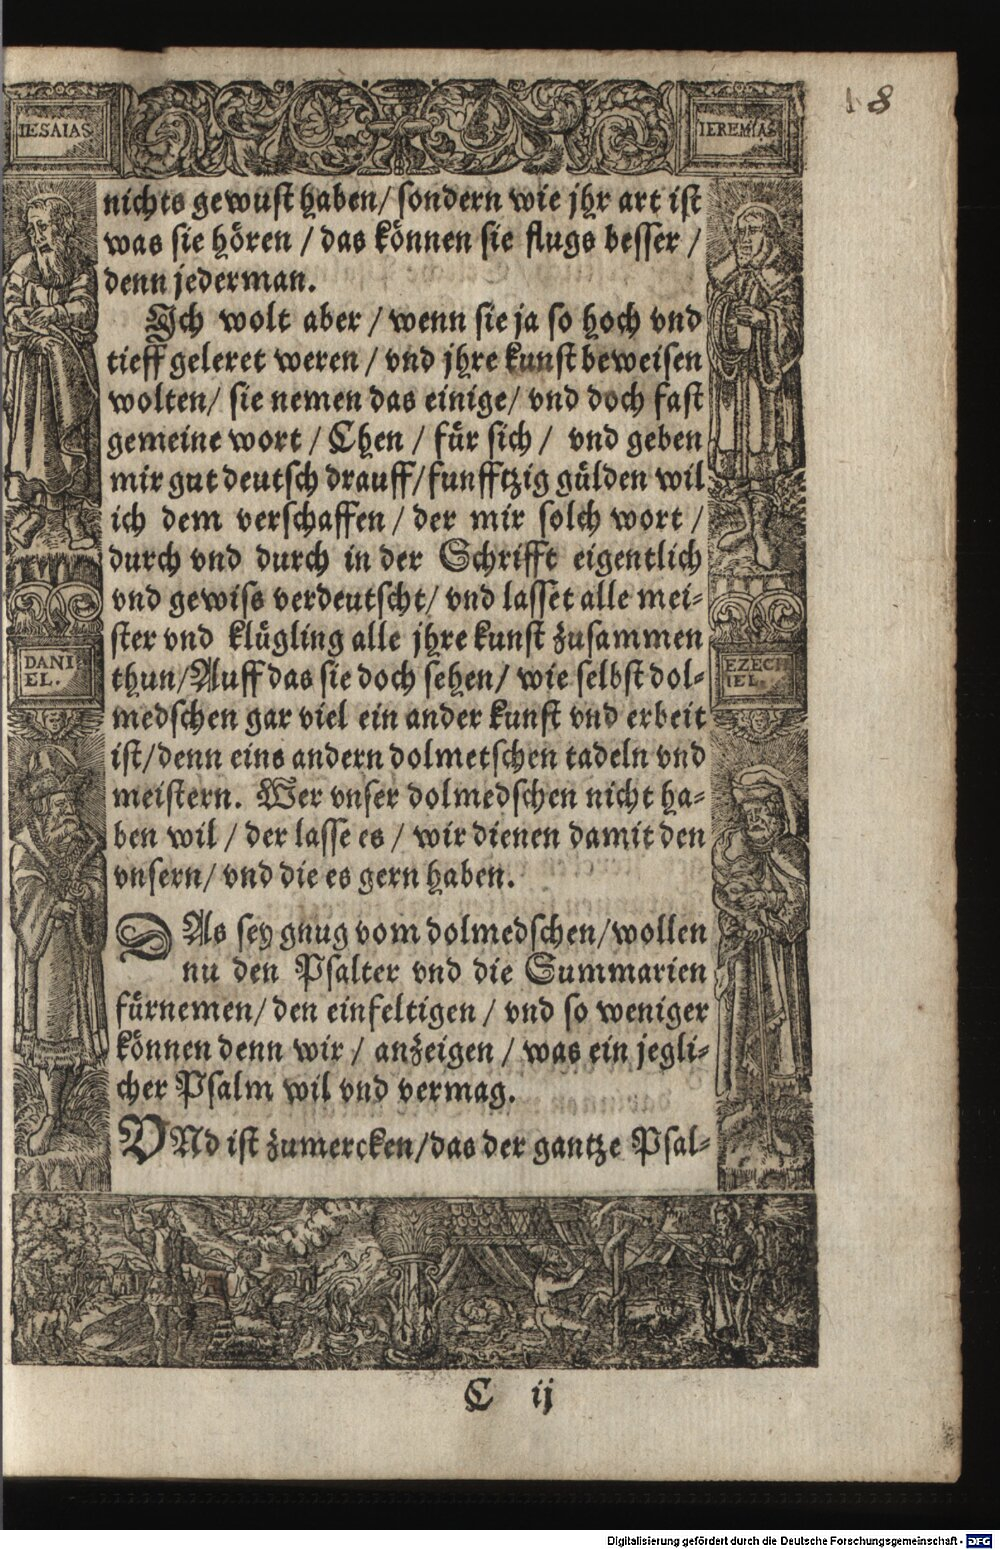 18
IESAIAS
IEREMIAS
nichts gewust haben/ sondern wie jhr art ist
was sie hören / das können sie flugs besser /
denn jederman.
Ich wolt aber / wenn sie ja so hoch vnd
tieff geleret weren / vnd jhre kunst beweisen
wolten/ sie nemen das einige/ vnd doch fast
gemeine wort / Chen / für sich / vnd geben
mir gut deutsch drauff/ funfftzig gülden wil
ich dem verschaffen / der mir solch wort /
durch vnd durch in der Schrifft eigentlich
vnd gewiss verdeutscht/ vnd lasset alle mei-
ster vnd klügling alle jhre kunst zusammen
thun/ Auff das sie doch sehen/ wie selbst dol-
medschen gar viel ein ander kunst vnd erbeit
ist/ denn eins andern dolmetschen tadeln vnd
meistern. Wer vnser dolmedschen nicht ha-
ben wil / der lasse es / wir dienen damit den
vnsern/ vnd die es gern haben.
DAs sey gnug vom dolmedschen/ wollen
nu den Psalter vnd die Summarien
fürnemen/ den einfeltigen / vnd so weniger
können denn wir / anzeigen / was ein jegli-
cher Psalm wil vnd vermag.
VNd ist zumercken/ das der gantze Psal-
DANI
EL.
EZECH
IEL.
C ij
Digitalisierung gefördert durch die Deutsche Forschungsgemeinschaft - DFG